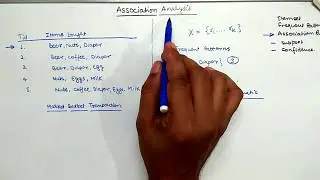 Association Analysis
Tid Items bought
1. beer, Nuts, Diaper
2. Beer, coffee, Diaper
3. Beer, Diaper, Egg
4 Nuts, Eggs, Milk
5 Nuts, Coffee, Diaper, Eggs, Milk
Market Basket Transaction
X = {x1, ... xk}
Frequent Patterns
Diaper} 3
Itemset
Frequent Patterns
Association
- Support
- Confidence